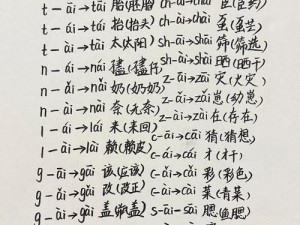 t-āi→tāi 胎(胚胎)
t-ái→tái 抬(抬头)
t-ài→tài 太(太阳)
n-ái→nái
n-ǎi→nǎi 奶(奶奶)
n-ài→nài 奈(无奈)
l-ái→lái 来(来回)
l-ài→lài 赖(赖皮)
g-āi→gāi 该(应该)
g-ǎi→gǎi 改(改正)
g-ài→gài 盖(瓶盖)
ch-ái→chái
ch-ài→chài 虿
sh-āi→shāi 筛(筛选)
sh-ài→shài 晒(晒干)
z-āi→zāi 灾(火灾)
z-ǎi→zǎi 崽(幼崽)
z-ài→zài 在(存在)
c-āi→cāi 猜(猜想)
c-ái→cái 才(才干)
c-ǎi→cǎi 彩(彩色)
c-ài→cài 菜(青菜)
s-āi→sāi 腮(鱼腮)